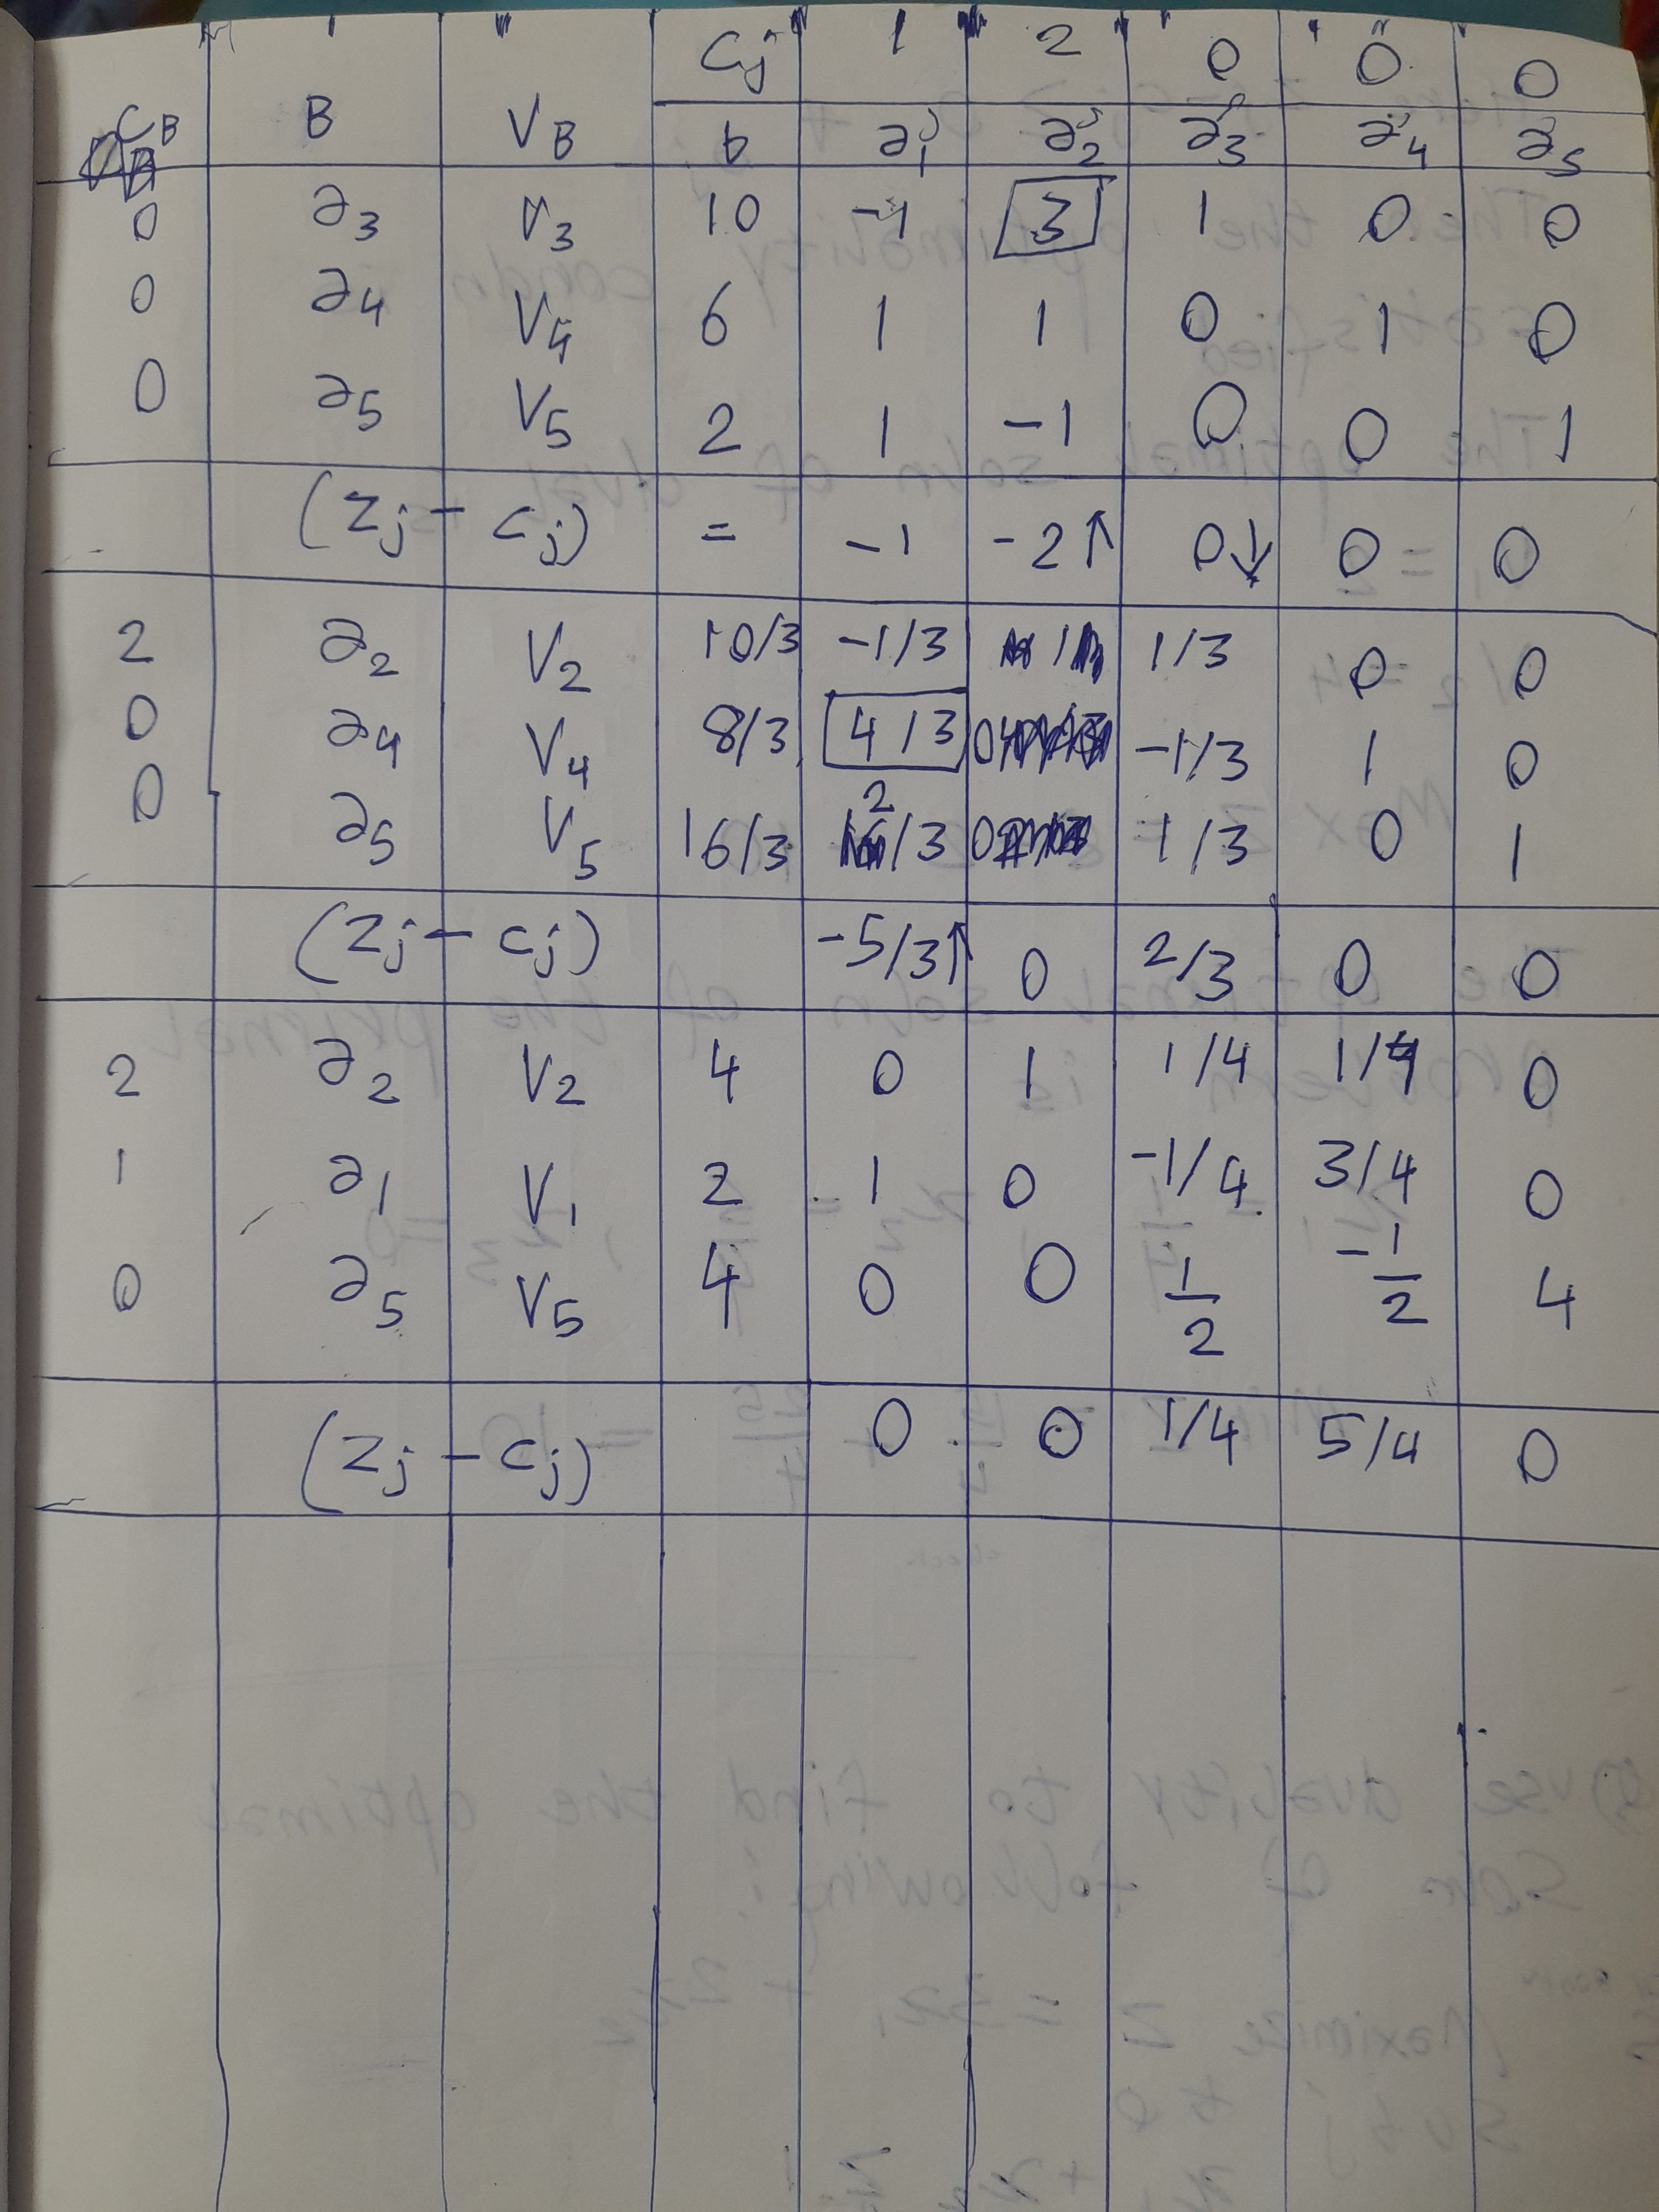 Cj 1 2 0 0 0
CB B VB b a1 a2 a3 a4 a5
0 a3 V3 10 -1 3 1 0 0
0 a4 V4 6 1 1 0 1 0
0 a5 V5 2 1 -1 0 0 1
(Zj - Cj) = -1 -2↑ 0↓ 0 0
2 a2 V2 10/3 -1/3 1 1/3 0 0
0 a4 V4 8/3 4/3 0 -1/3 1 0
0 a5 V5 16/3 2/3 0 1/3 0 1
(Zj - Cj) -5/3↑ 0 2/3 0 0
2 a2 V2 4 0 1 1/4 1/4 0
1 a1 V1 2 1 0 -1/4 3/4 0
0 a5 V5 4 0 0 1/2 -1/2 4
(Zj - Cj) 0 0 1/4 5/4 0